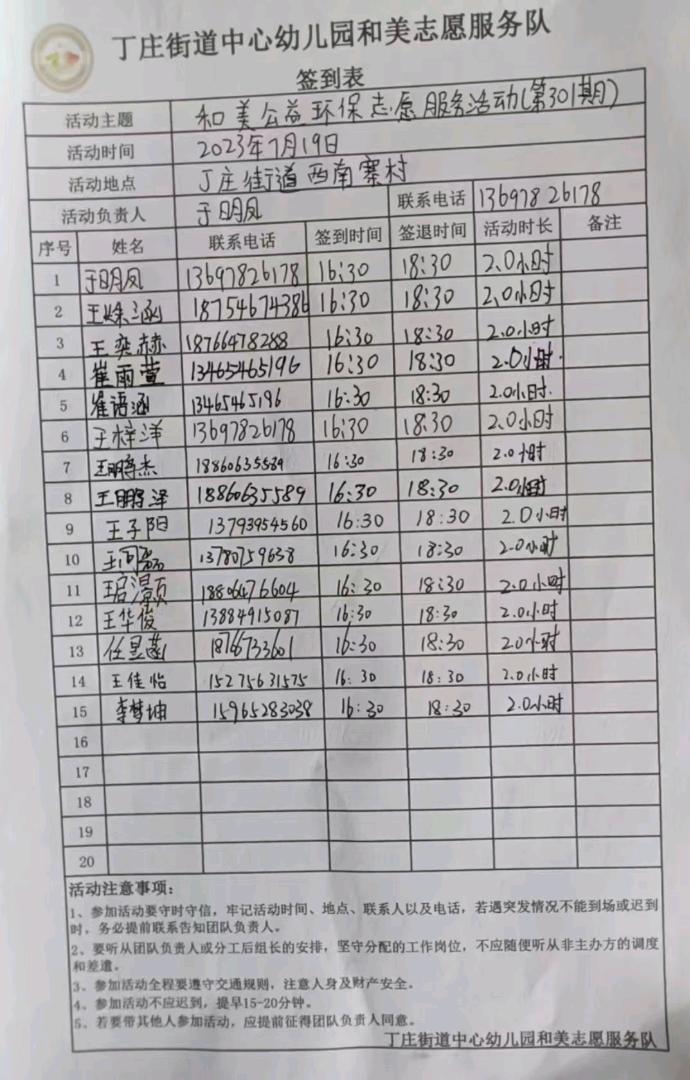 丁庄街道中心幼儿园和美志愿服务队
签到表
活动主题 和美公益环保志愿服务活动(第301期)
活动时间 2023年7月19日
活动地点 丁庄街道西南寨村
活动负责人 于明凤 联系电话 13697826178
序号 姓名 联系电话 签到时间 签退时间 活动时长 备注
1 于明凤 13697826178 16:30 18:30 2.0小时
2 18754674386 16:30 18:30 2.0小时
3 王奕赫 18766478288 16:30 18:30 2.0小时
4 崔雨萱 13465465196 16:30 18:30 2.0小时.
5 崔语涵 13465465196 16:30 18:30 2.0小时.
6 王梓洋 13697826178 16:30 18:30 2.0小时
7 王鹏杰 18860635589 16:30 18:30 2.0小时
8 王鹏泽 18860635589 16:30 18:30 2.0小时
9 王子阳 13793954560 16:30 18:30 2.0小时
10 13780759638 16:30 18:30 2.0小时
11 18806476604 16:30 18:30 2.0小时
12 王华俊 13884915087 16:30 18:30 2.0小时
13 18766733601 16:30 18:30 2.0小时
14 王佳怡 15275631575 16:30 18:30 2.0小时
15 李梦坤 15965283038 16:30 18:30 2.0小时
16
17
18
19
20
活动注意事项：
1、参加活动要守时守信，牢记活动时间、地点、联系人以及电话，若遇突发情况不能到场或迟到
时，务必提前联系告知团队负责人。
2、要听从团队负责人或分工后组长的安排，坚守分配的工作岗位，不应随便听从非主办方的调度
和差遣。
3、参加活动全程要遵守交通规则，注意人身及财产安全。
4、参加活动不应迟到，提早15-20分钟。
5、若要带其他人参加活动，应提前征得团队负责人同意。
丁庄街道中心幼儿园和美志愿服务队